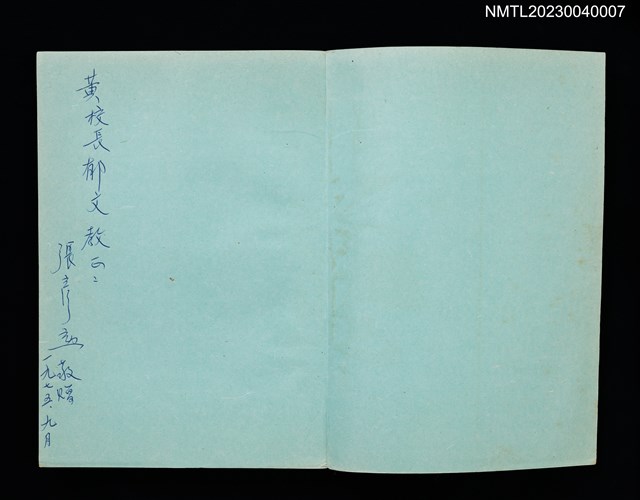 NMTL20230040007
黃校長郁文教正：
張彥勳敬贈
一九七五、九月